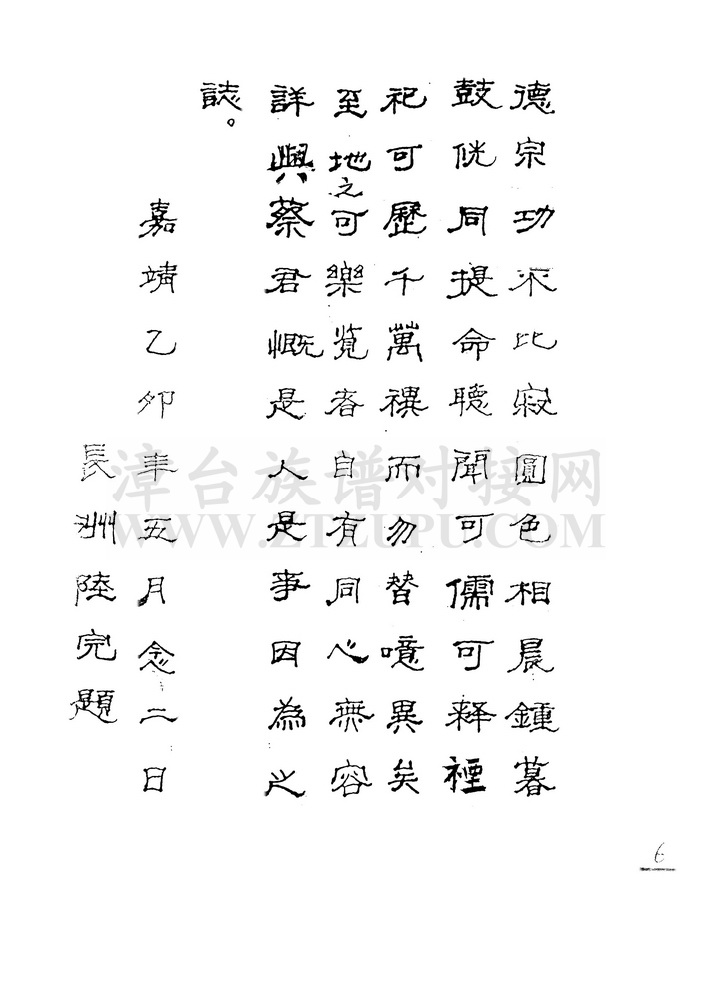 德宗功不比寂圓色相晨鐘暮
鼓恍同提命聽聞可儒可释禋
祀可歷千萬禩而勿替噫異矣
至地之可樂覧者自有同心無容
詳與蔡君慨是人是事因為之
誌。
嘉靖乙卯年五月念二日
長洲陸完題
漳台族谱对接网
WWW.ZTZUPU.COM
6